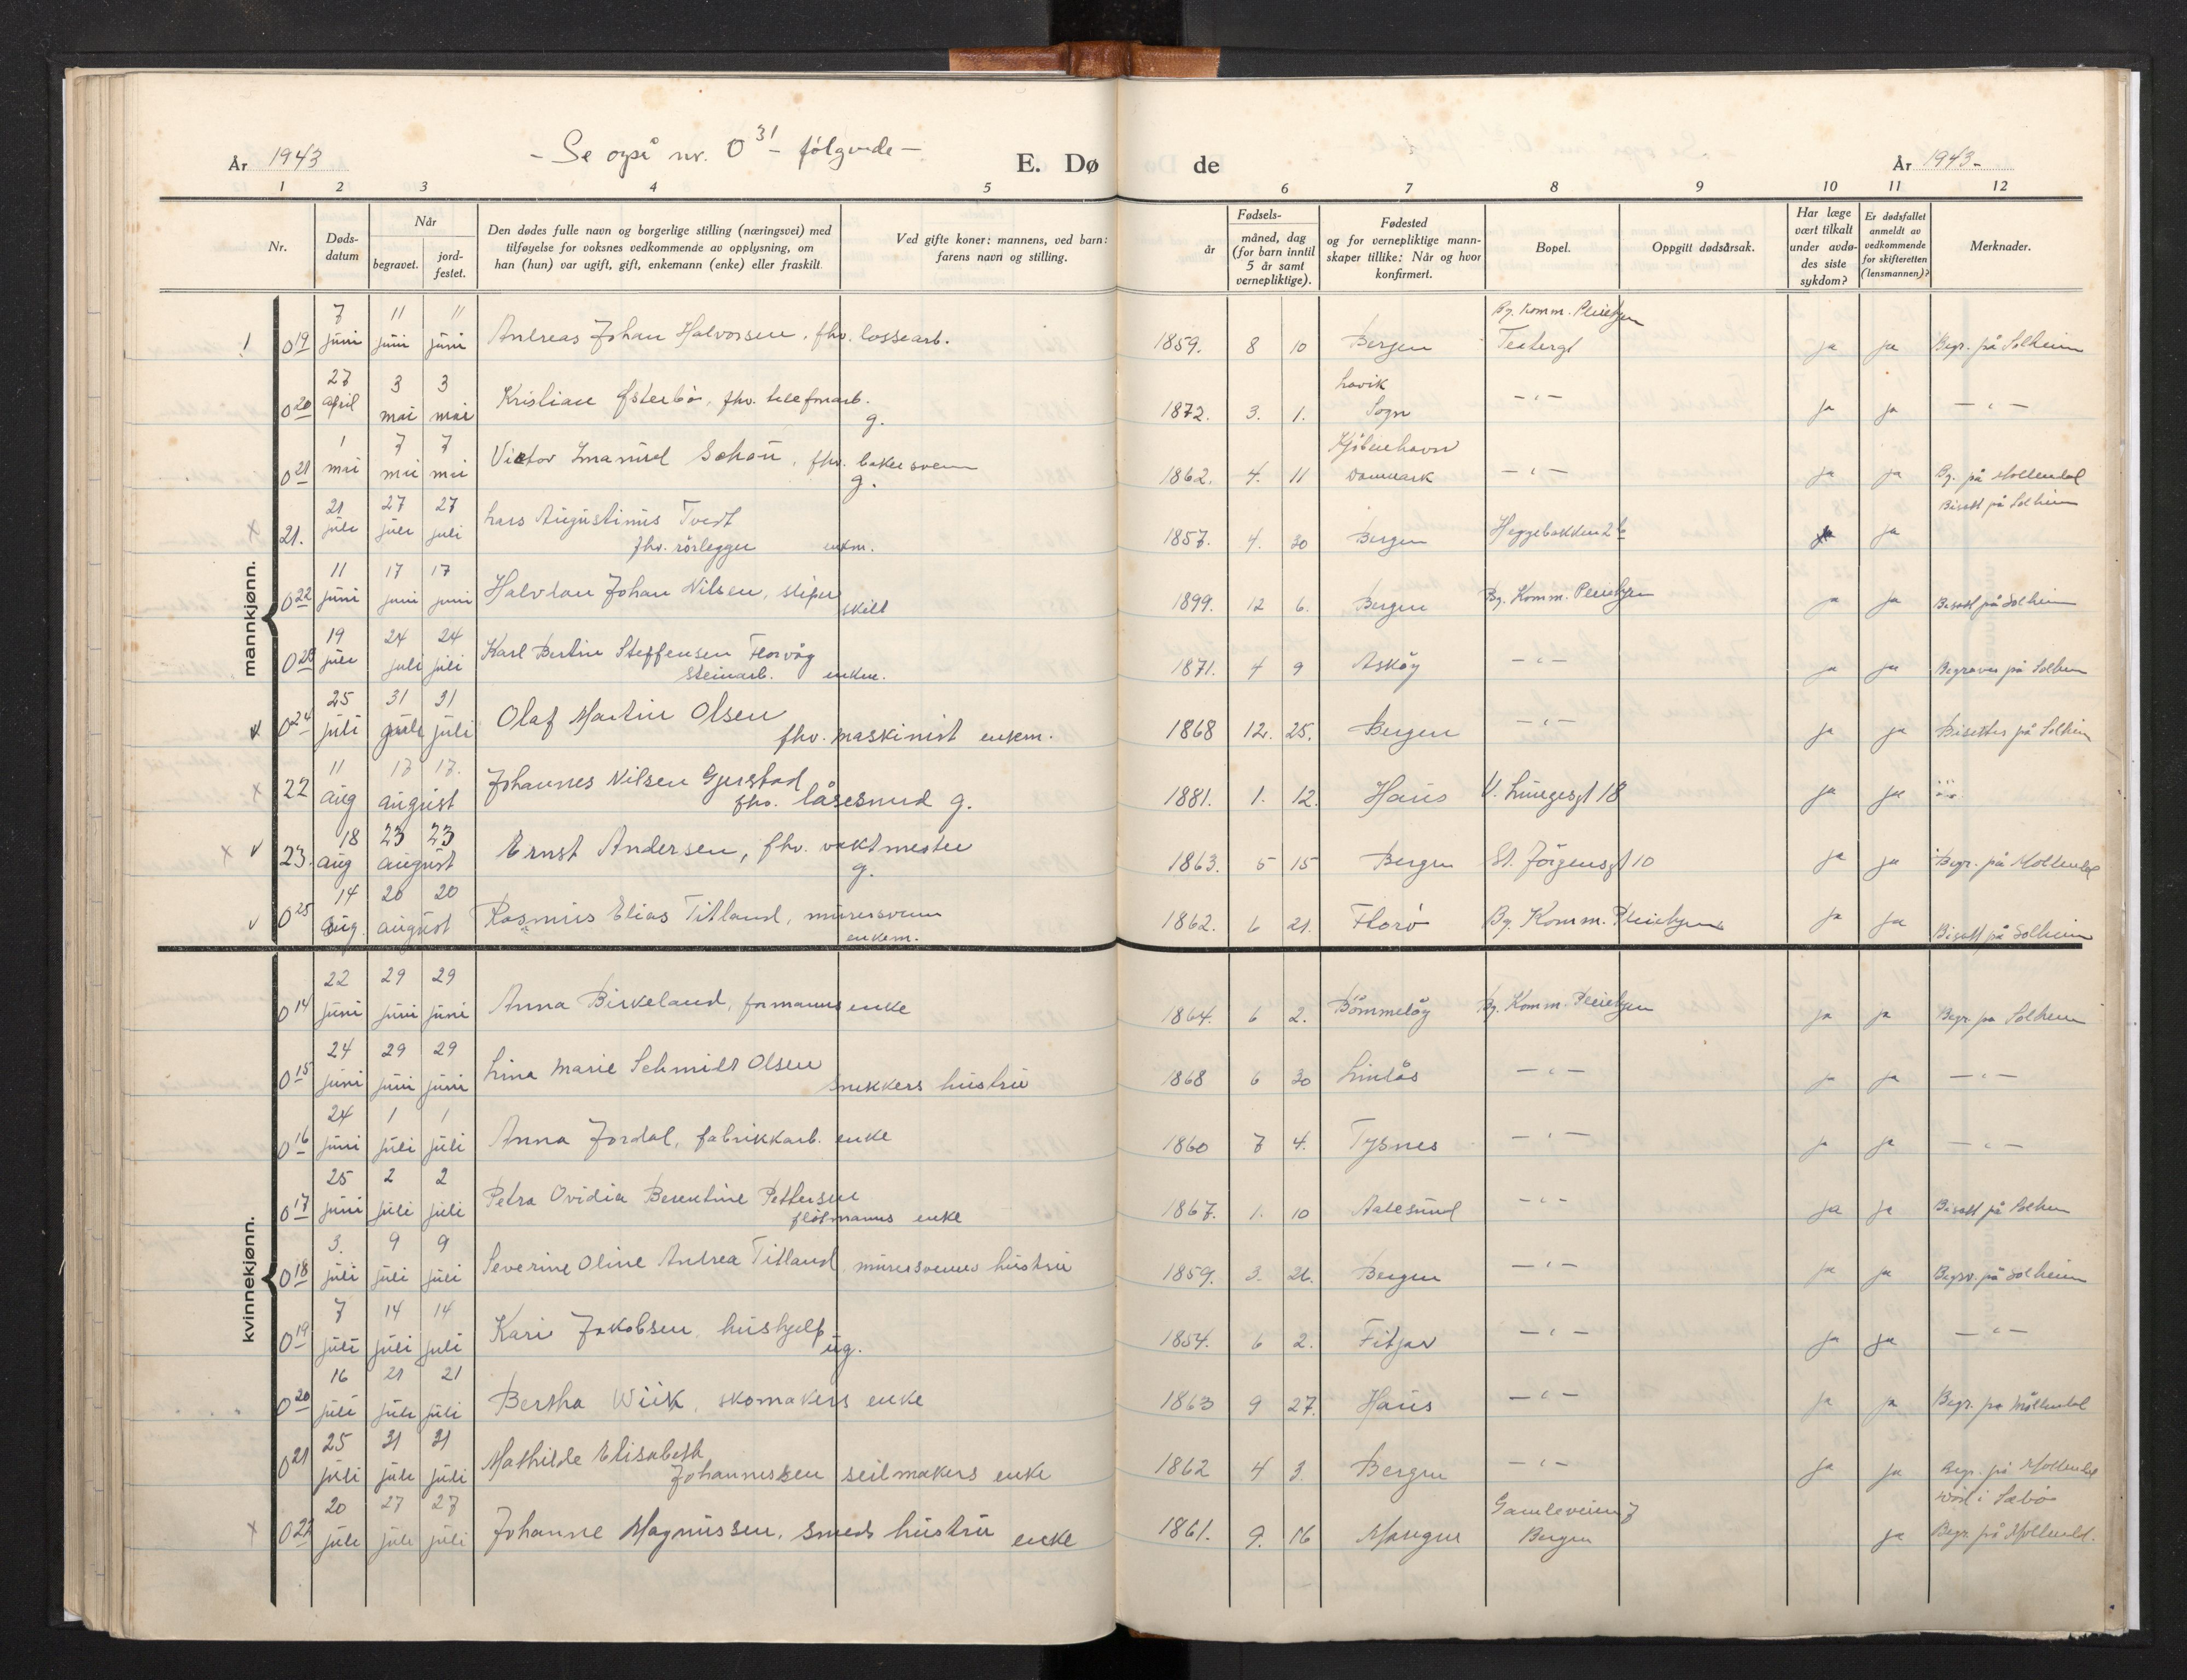 År 1943
- Se også nr. 0 31 - følgende -
E. Dø de
År 1943-
1 2 3 4 5 6 7 8 9 10 11 12
Nr.
Døds-
datum
Når
begravet.
jord-
festet.
Den dødes fulle navn og borgerlige stilling (næringsvei) med
tilføyelse for voksnes vedkommende av opplysning, om
han (hun) var ugift, gift, enkemann (enke) eller fraskilt.
Ved gifte koner: mannens, ved barn:
farens navn og stilling.
Fødsels-
år
måned, dag
(for barn inntil
5 år samt
vernepliktige).
Fødested
og for vernepliktige mann-
skaper tillike: Når og hvor
konfirmert.
Bopel.
Oppgitt dødsårsak.
Har læge
vært tilkalt
under avdø-
des siste
sykdom?
Er dødsfallet
anmeldt av
vedkommende
for skifteretten
(lensmannen)?
Merknader.
mannkjønn.
7 11 11 By. Komm. Pleiehjem
019 juni juni juni Andreas Johan Halvorsen, fhv. lossearb. 1859. 8 10 Bergen ja ja Begr. på Solheim
27 3 3 Lavik
020 april mai mai Kristian Østerbö, fhv. telefonarb. g. 1872. 3. 1. Sogn - " - ja ja - " -
1 7 7 Kjöbenhavn
021 mai mai mai Victor Imanuel Schou, fhv. bakersvenn g. 1862. 4. 11 Danmark - " - ja ja Bg. på Möllendal
21 27 27 Lars Augustinus Tvedt Bisatt på Solheim
21. juli juli juli fhv. rörlegger enkm. 1857. 4. 30 Bergen Heggebakken 2b ja ja
11 17 17
022 juni juni juni Halvdan Johan Nilsen, sliper skilt 1899. 12 6. Bergen By. Komm. Pleiehjem ja ja Bisatt på Solheim
19 24 24 Karl Bertin Steffensen Florvåg
023 juli juli juli steinarb. enkm. 1871. 4 9 Asköy - " - ja ja Begraves på Solheim
25 31 31 Olaf Martin Olsen
024 juli juli juli fhv. maskinist enkm. 1868 12. 25. Bergen - " - ja ja Bisettes på Solheim
11 17 17. Johannes Nilsen Gjerstad
22 aug august fhv. låsesmed g. 1881. 1. 12. Haus V. Lungegt 18 ja ja
18 23 23
23. aug august Ernst Andersen, fhv. vaktmester g. 1863. 5 15 Bergen St. Jörgensgt 10 ja ja Begr. på Möllendal
14 20 20
025 aug. august Rasmus Elias Titland, murersvenn enkem. 1862. 6 21. Florö By. Komm. Pleiehjem ja ja Bisatt på Solheim
kvinnekjønn.
22 29 29
014 juni juni juni Anna Birkeland, formanns enke 1864. 6 2. Bömmelöy By. Komm. Pleiehjem ja ja Begr. på Solheim
24 29 29
015 juni juni juni Lina Marie Schmidt Olsen snekkers hustru 1868 6 30 Lindås - " - ja ja - " -
24 1 1
016 juni juli juli Anna Jordal, fabrikkarb. enke 1860 7 4. Tysnes - " - ja ja - " -
25 2 2 Petra Ovidia Berentine Pettersen
017 juni juli juli flötmanns enke 1867. 1. 10 Aalesund - " - ja ja Bisatt på Solheim
3. 9 9
018 juli juli juli Severine Oline Andrea Titland murersvenns hustru 1859. 3. 26. Bergen - " - ja ja Begrv. på Solheim
7 14 14
019 juli juli juli Kari Jakobsen hushjelp ug. 1854. 6 2. Fitjar - " - ja ja - " -
16 21 21
020 juli juli juli Bertha Wiik, skomakers enke 1863 9 27. Haus - " - ja ja Begr. på Möllendal
25 31 31 Mathilde Elisabeth
021 juli juli juli Johannessen seilmakers enke 1862 4 3. Bergen - " - ja ja Begr. på Möllendal
20 27 27 Gamleveien 7
022 juli juli juli Johanne Magnussen, smeds hustru enke 1861. 9. 16 Manger Bergen ja Begr. på Möllend.